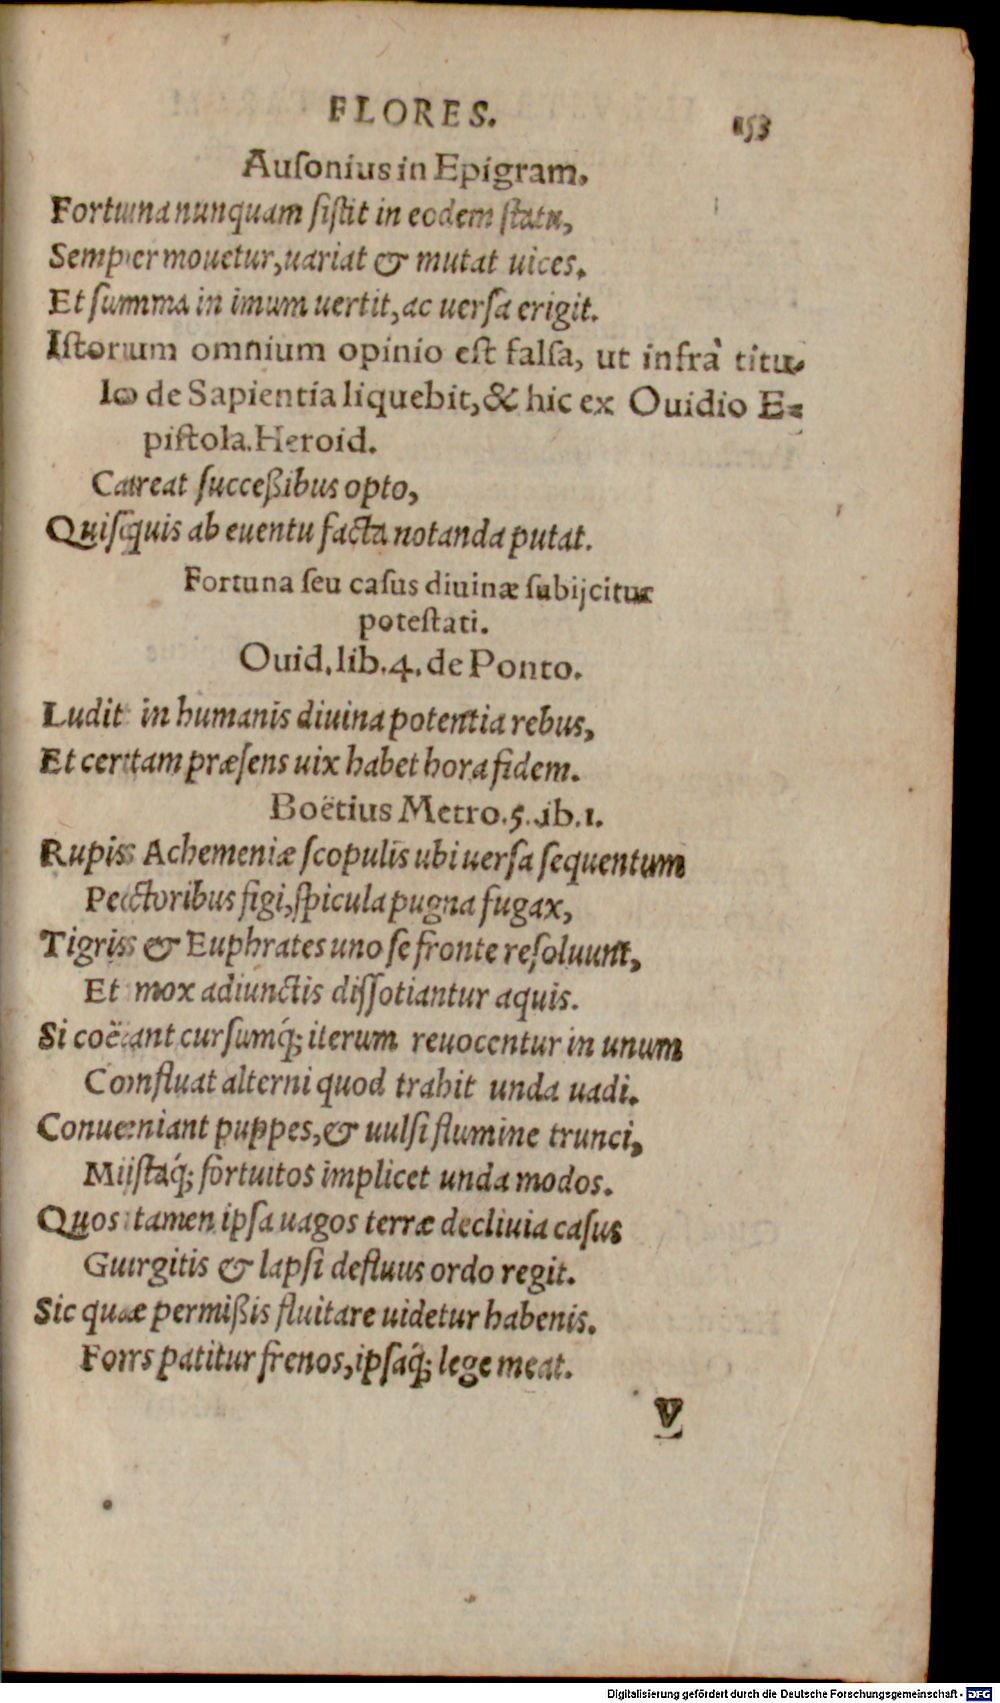 FLORES.
153
Auſonius in Epigram.
Fortuna nunquam ſiſtit in eodem ſtatu,
Semper mouetur, uariat & mutat uices.
Et ſumma in imum uertit, ac uerſa erigit.
Iſtorum omnium opinio eſt falſa, ut infrà titu-
lo de Sapientia liquebit, & hic ex Ouidio E-
piſtola. Heroid.
Careat ſucceßibus opto,
Quiſquis ab euentu facta notanda putat.
Fortuna ſeu caſus diuinæ ſubijcitur
poteſtati.
Ouid. lib. 4. de Ponto.
Ludit in humanis diuina potentia rebus,
Et certam præſens uix habet hora fidem.
Boëtius Metro. 5. lib. 1.
Rupis Achemeniæ ſcopulis ubi uerſa ſequentum
Pectoribus figi, ſpicula pugna fugax,
Tigris & Euphrates uno ſe fronte reſoluunt,
Et mox adiunctis diſſotiantur aquis.
Si coëant curſumq́; iterum reuocentur in unum
Confluat alterni quod trahit unda uadi.
Conueniant puppes, & uulſi flumine trunci,
Miſtaq́; fortuitos implicet unda modos.
Quos tamen ipſa uagos terræ decliuia caſus
Gurgitis & lapſi defluus ordo regit.
Sic quæ permißis fluitare uidetur habenis.
Fors patitur frenos, ipſaq́; lege meat.
V
Digitalisierung gefördert durch die Deutsche Forschungsgemeinschaft - DFG